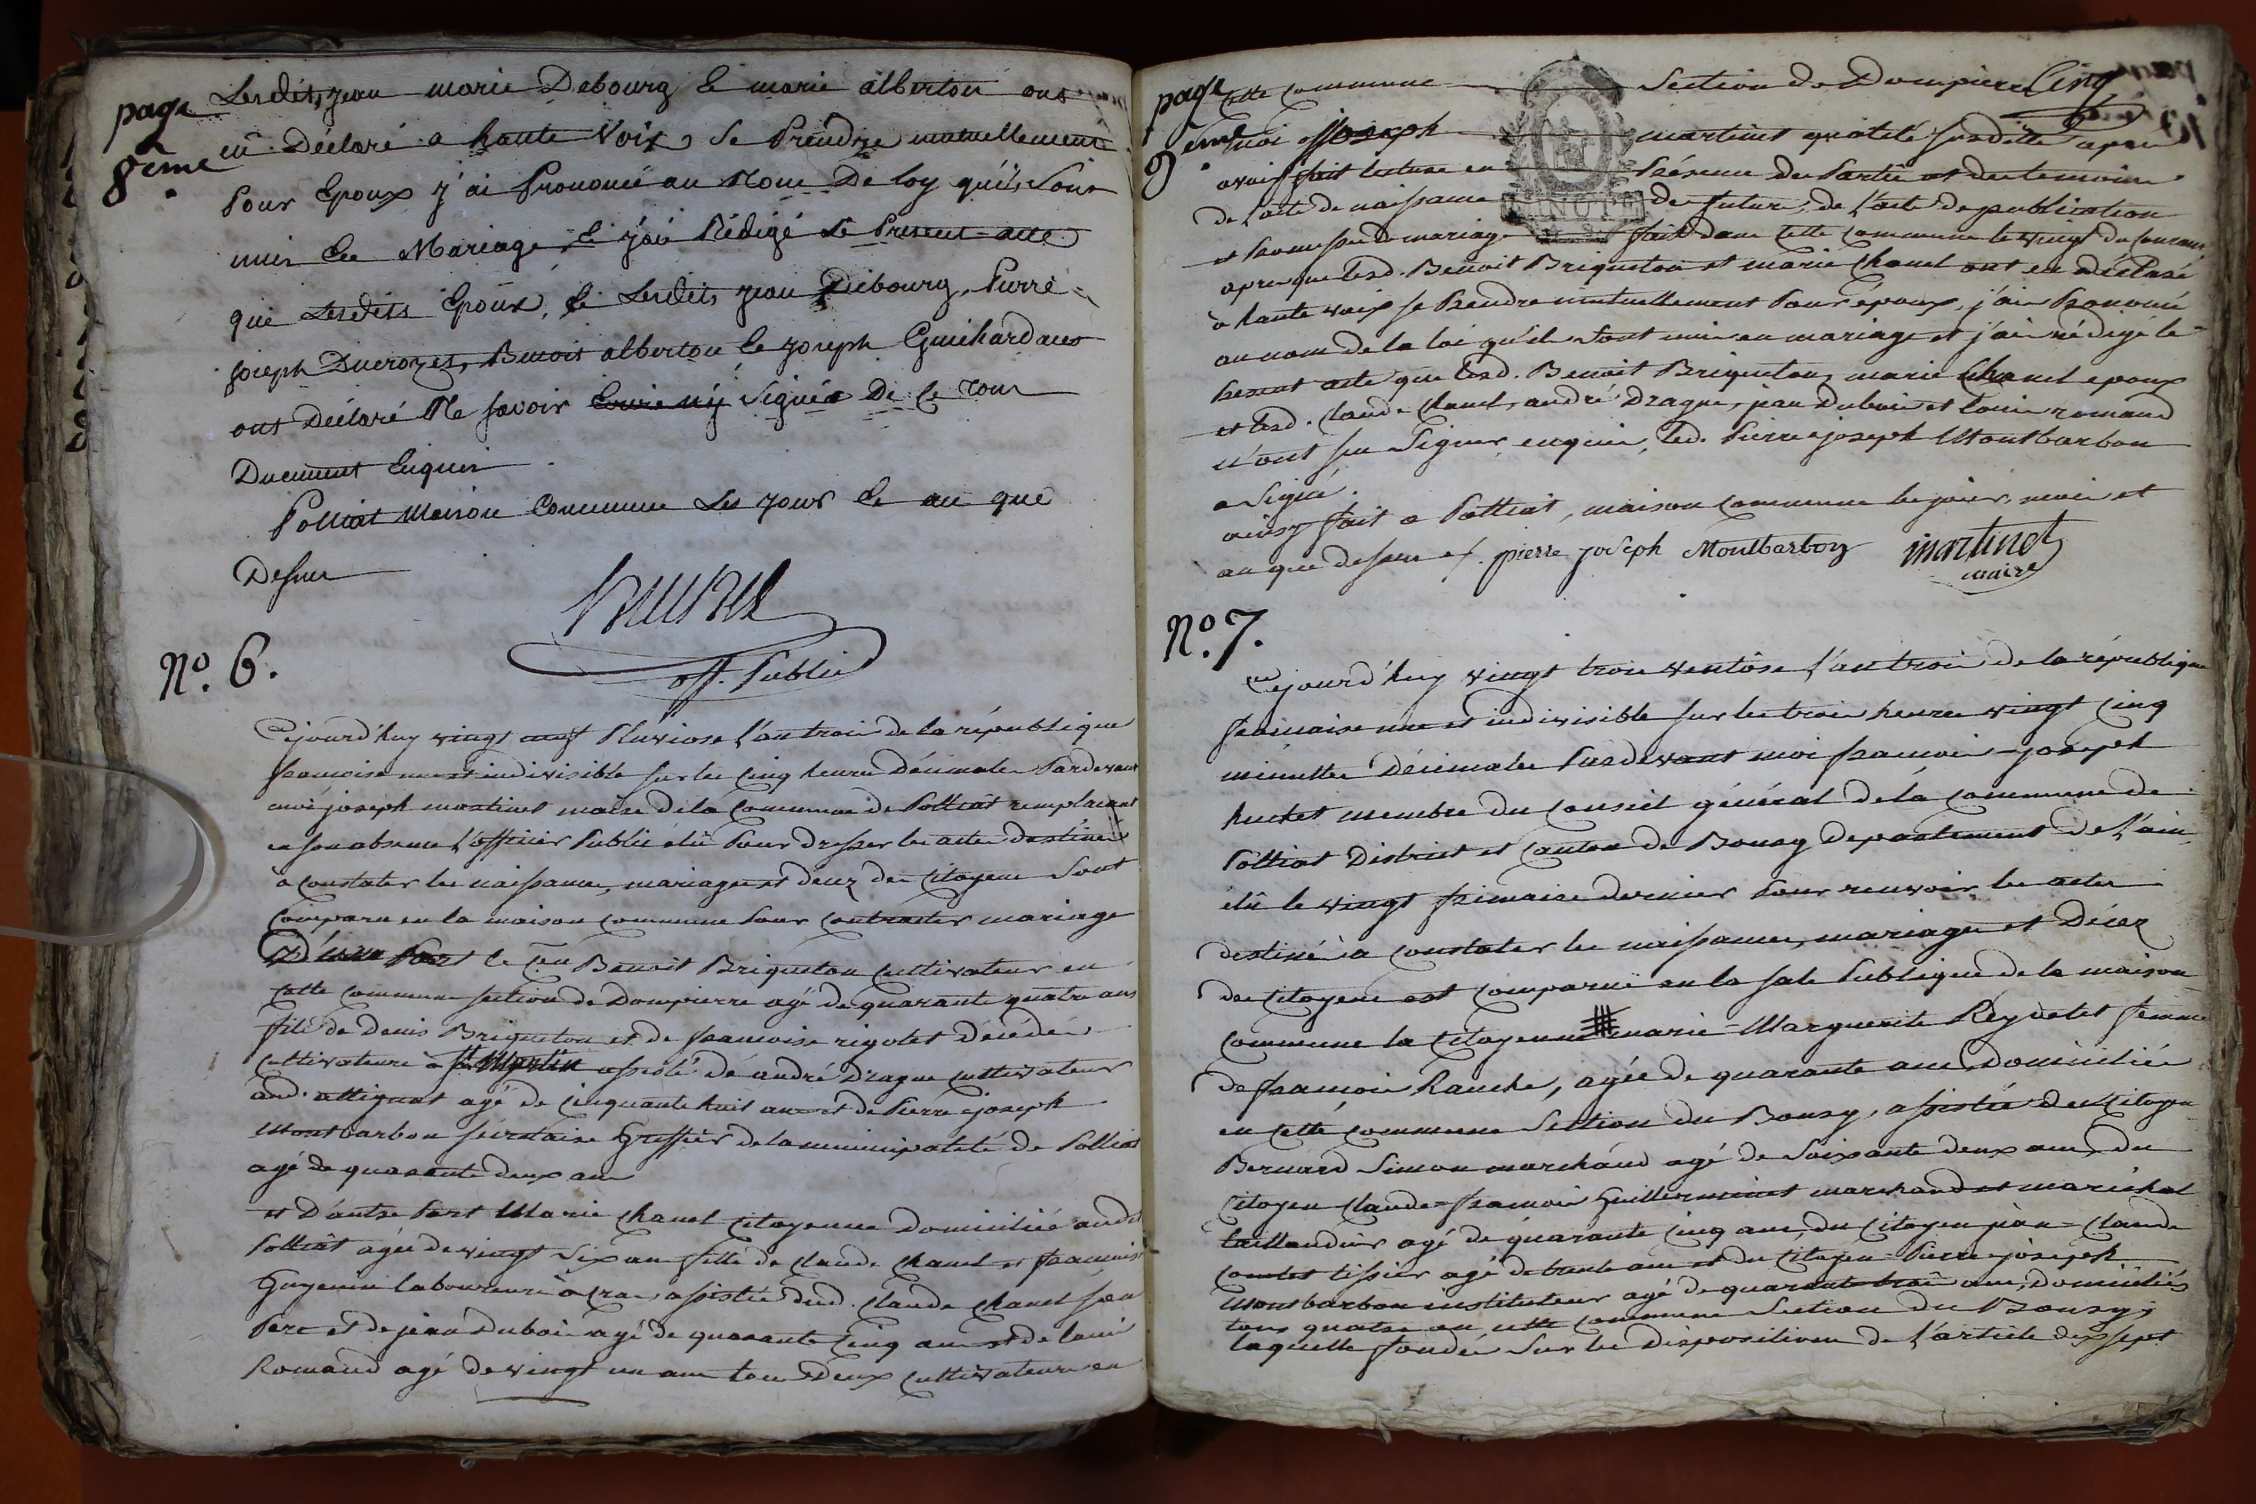 page
8ème
Lesdits jean marie Debourg & marie alberton ont
eu Déclaré a haute Voix, Se Prendre mutuellement
Pour Epoux j'ai Prononcé au Nom De loy qu'ils Sont
unis En Mariage, & j'ai Rédigé Le Present acte
que Lesdits Epoux, & Lesdits jean Debourg, Pierre
joseph Ducrozet, Benoit alberton & joseph Guichard
ont Déclaré Ne Savoir Ecrire ny Signér De Ce
Duement Enquis
Polliat Maison Commune Les jour & an que
Dessus
off. Public
No. 6.
Cejourd'huy vingt neuf Pluviose l'an trois de la république
francoise une et indivisible sur les Cinq heures Décimales Pardevant
moi joseph martinet maire de la Commune de Polliat remplacant
en son absence l'officier Public élû Pour dresser les actes destinés
a Constater les naissances, mariages et décez des Citoyens Sont
Comparu en la maison Commune Pour Contracter mariage
D'une Part le Cen Benoit Briqueton Cultivateur en
Cette Commune section de Dompierre agé de quarante quatre ans
fils de Denis Briqueton et de francoise rigolet Décédés
Cultivateurs à St Martin assisté de andré Dragne Cultivateur
aud. attignat agé de Cinquante huit ans et de Pierre joseph
Montbarbon Sécretaire Greffier de la municipalité de Polliat
agé de quarante deux ans
et D'autre Part Marie Chanel Citoyenne Domiciliée aud.
Polliat agée de vingt Six ans fille de Claude Chanel et francoise
Guyenin laboureurs à Cras, assistée dud. Claude Chanel son
Pere et de jean Dubois agé de quarante Cinq ans et de louis
Romand agé de vingt un ans tous Deux Cultivateurs en
page
9ème
Cette Commune Section de Dompierre Cinq
moi Joseph martinet qualité susditte après
avoir fait lecture en Présence des Parties et des temoins
de l'acte de naissance des futurs, de l'acte de publication
et Promesse de mariage fait dans Cette Commune le vingt du Courant
apres que lesd. Benoit Briqueton et marie Chanel ont eu déclaré
à haute voix se Prendre mutuellement Pour époux, j'ai Prononcé
au nom de la loi qu'ils sont unis en mariage et j'ai rédigé le
Present acte que lesd. Benoit Briqueton, marie Chanel epoux
et lesd. Claude Chanel, andré Dragne, jean Dubois et louis romand
n'ont su Signer, enquis, led. Pierre joseph Montbarbon
a Signé.
ainsy fait a Polliat, maison Commune les jour, mois et
an que dessus pierre joseph Montbarbon martinet
maire
No. 7.
Cejourd'huy vingt trois ventôse l'an trois de la république
francaise une et indivisible sur les trois heures vingt Cinq
minuttes Décimales Pardevant moi francois joseph
huchet membre du Conseil général de la Commune de
Polliat District et Canton de Bourg département de l'ain
élû le vingt frimaire dernier Pour recevoir les actes
destinés a Constater les naissances, mariages et Décez
des Citoyens est Comparuë en la sale Publique de la maison
Commune la Citoyenne marie-Marguerite Reydelet femme
de francois Ranche, agée de quarante ans Domiciliée
en Cette Commune Section du Bourg, assistée de Citoyen
Bernard Simon marchand agé de Soixante deux ans, du
Citoyen Claude-francois Guillerminet marchand et maréchal
taillandier agé de quarante Cinq ans, du Citoyen jean-Claude
Comtet tissier agé de trente ans et du Citoyen Pierre joseph
Montbarbon instituteur agé de quarante trois ans, Domiciliés
tous quatre en cette Commune Section du Bourg;
laquelle fondée Sur les Dispositions de l'article dix sept